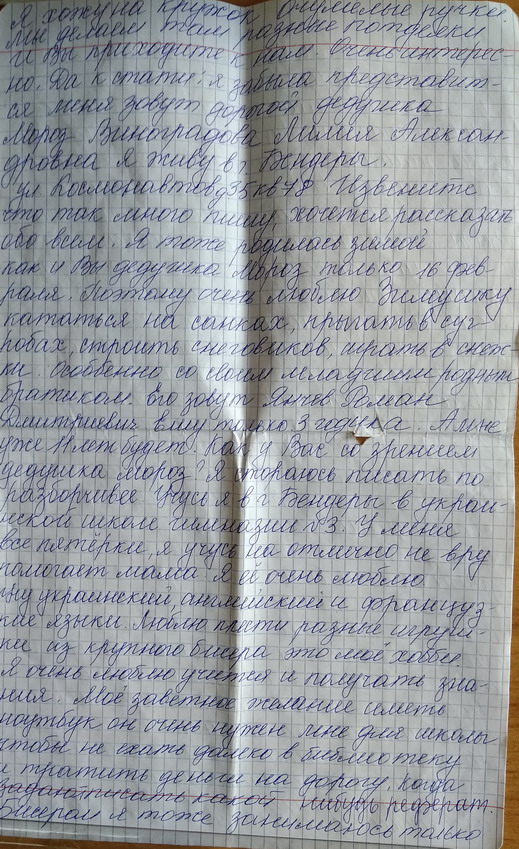 Я хожу на кружок очумелые ручки
Мы делаем там разные поделки
и Вы приходите к нам Очень интерес-
но. Да к статие: я забыла представит-
ся меня зовут дорогой дедушка
Мороз Виноградова Лилия Алексан-
дровна Я живу в г. Бендеры.
ул Космонавтов д35кв78 Извените
что так много пишу, хочется рассказать
обо всем. Я тоже родилась зимой
как и Вы дедушка Мороз только 16 фев-
раля. Поэтому очень люблю Зимушку
кататься на санках, прыгать в суг
робах, строить снеговиков, играть в снеж
ки. Особенно со своим младшим родным
братиком. Его зовут Янчев Роман
Дмитриевич Ему только 3 годика. А мне
уже 11 лет будет. Как у Вас со зрением
дедушка Мороз? Я стораюсь писать по
разборчивее Учусь я в г. Бендеры в украи-
нской школе гимназии №3. У меня
все пятёрки, я учусь на отлично не вру
помогает мама. Я её очень люблю
учу украинский, английский и француз-
кие языки. Люблю плести разные игруш-
ки из крупного бисера это моё хобби
Я очень люблю учится и получать зна-
ния. Моё заветное желание иметь
ноутбук он очень нужен мне для школы
чтобы не ехать далеко в библиотеку
и тратить деньги на дорогу, когда
писать какой реферат.
Бисером я тоже занимаюсь только